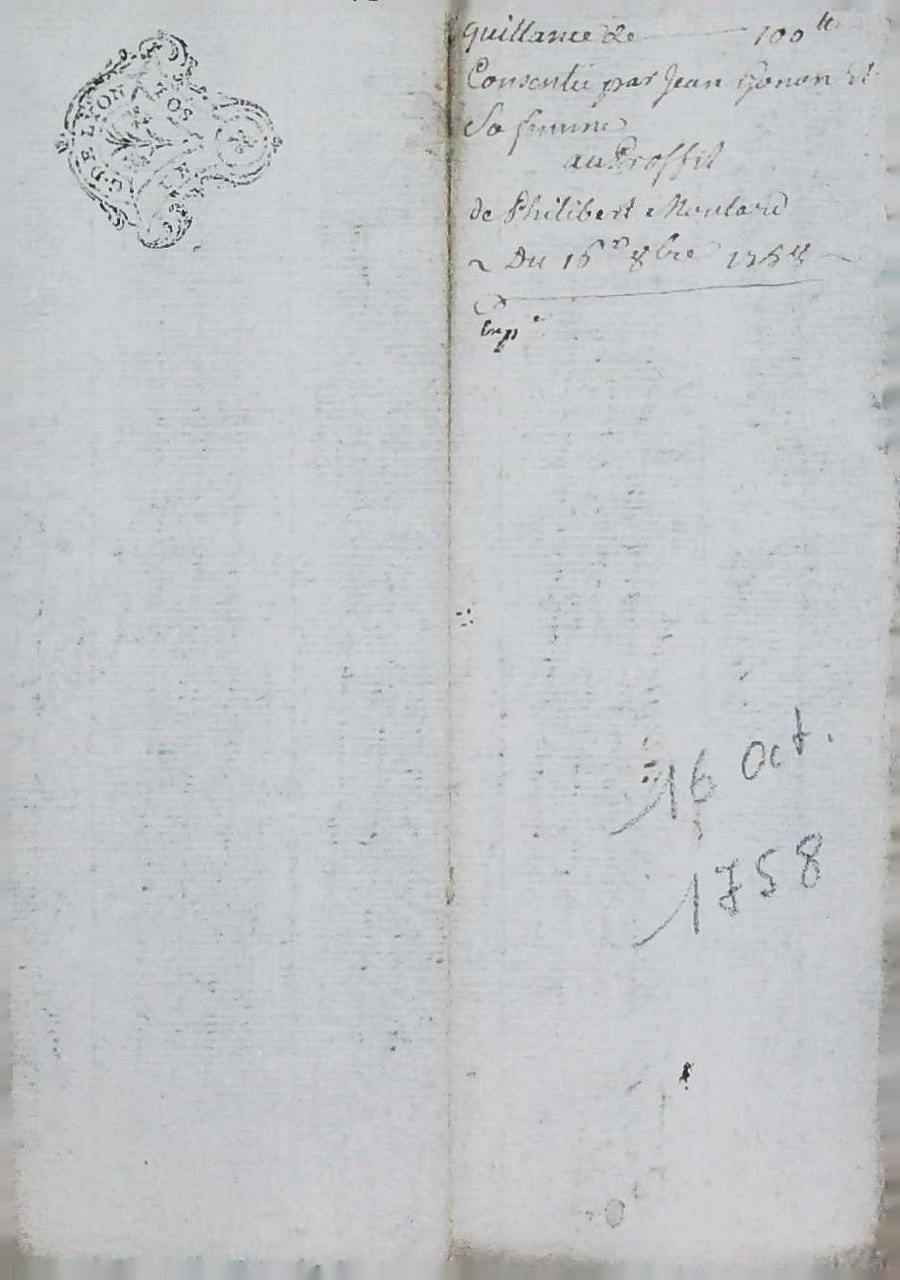 G. DE LYON
quittance de 100 tt
Consentie par Jean Gonon et
Sa femme
au Proffit
de Philibert Moulard
Du 16e 8bre 1758
Exp.
16 oct.
1758